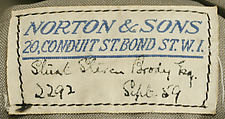 NORTON & SONS
20, CONDUIT ST. BOND ST. W.1.
Stuart Steven Brody Esq.
2292 Sept. 89